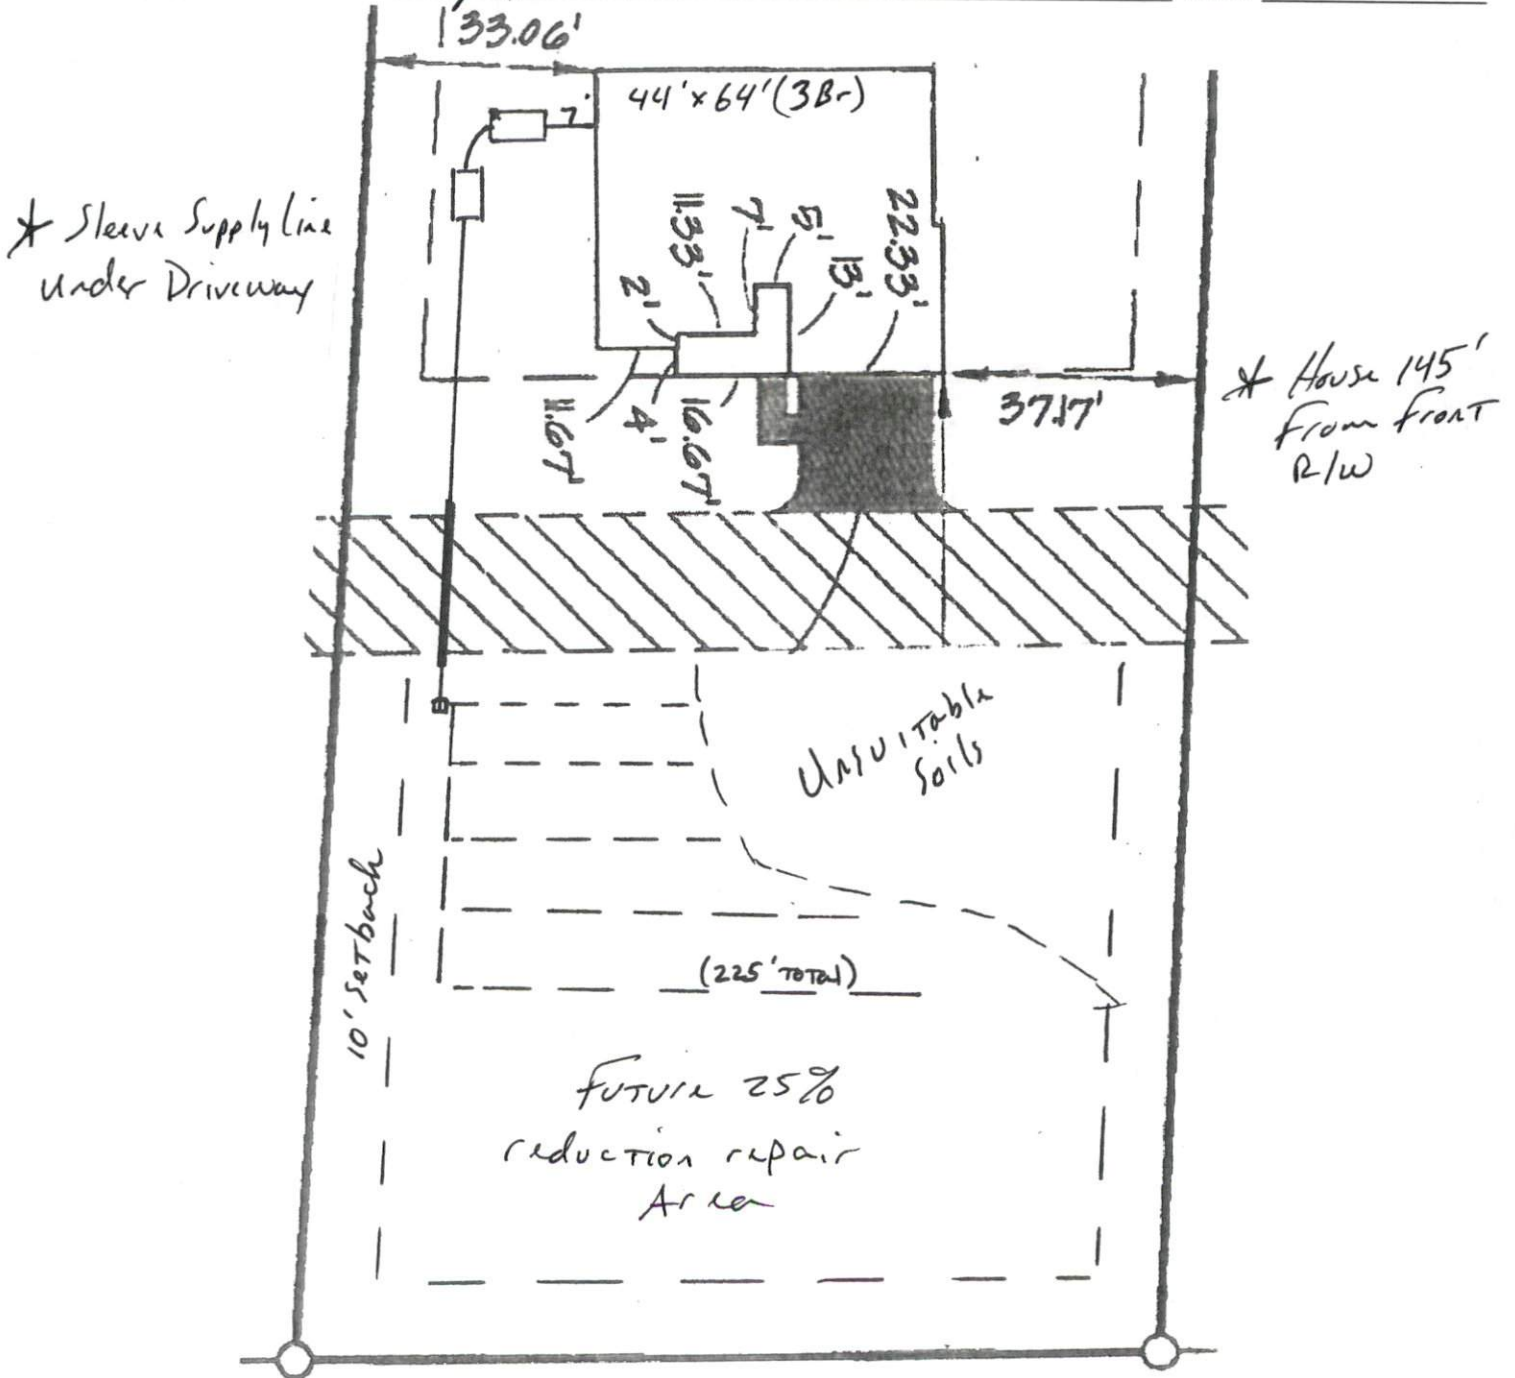 33.06'
44' x 64' (3Br)
7'
* Sleeve Supply line
under Driveway
11.33'
7'
5'
13'
22.33'
2'
11.67'
4'
16.67'
37.17'
* House 145'
From Front
R/W
Unsuitable
Soils
10' setback
(225' Total)
Future 25%
reduction repair
Area